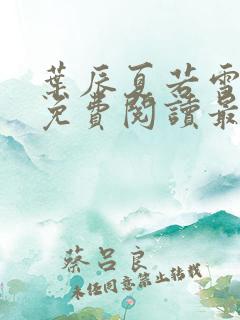 葉辰夏若雪
免費閱讀最
蔡呂良
未經同意禁止轉載